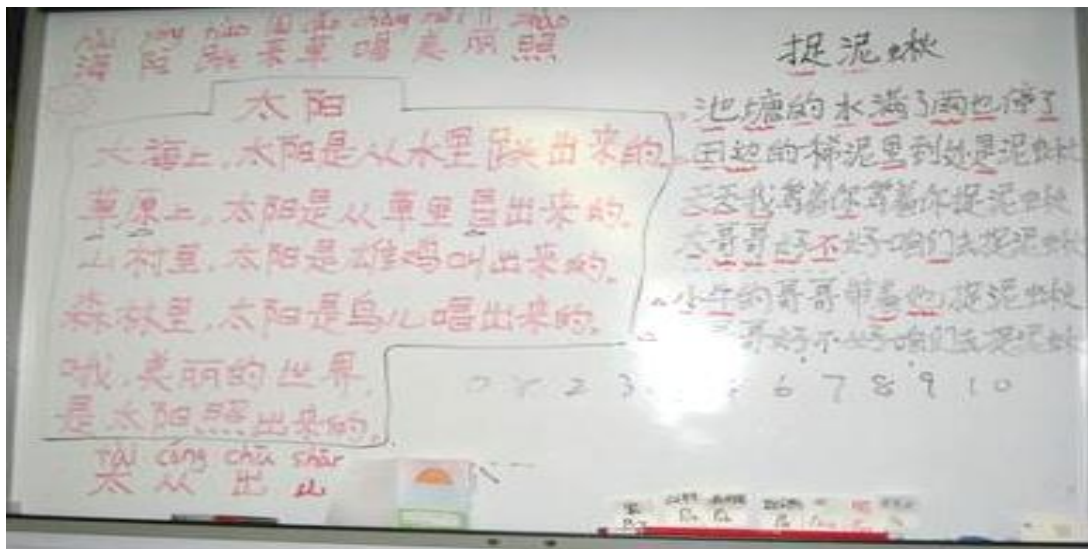 海 阳 跃 来 草 唱 美 丽 照
太阳
大海上,太阳是从水里跃出来的。
草原上,太阳是从草里冒出来的。
山村里,太阳是雄鸡叫出来的。
森林里,太阳是鸟儿唱出来的。
哦,美丽的世界,
是太阳照出来的。
tài cóng chū shān
太 从 出 山
捉泥鳅
池塘的水满了雨也停了
田边的稀泥里到处是泥鳅
天天我等着你等着你捉泥鳅
大哥哥好不好咱们去捉泥鳅
小牛的哥哥带着他捉泥鳅
哥好不好咱们去捉泥鳅
0 2 3 6 7 8 9 10